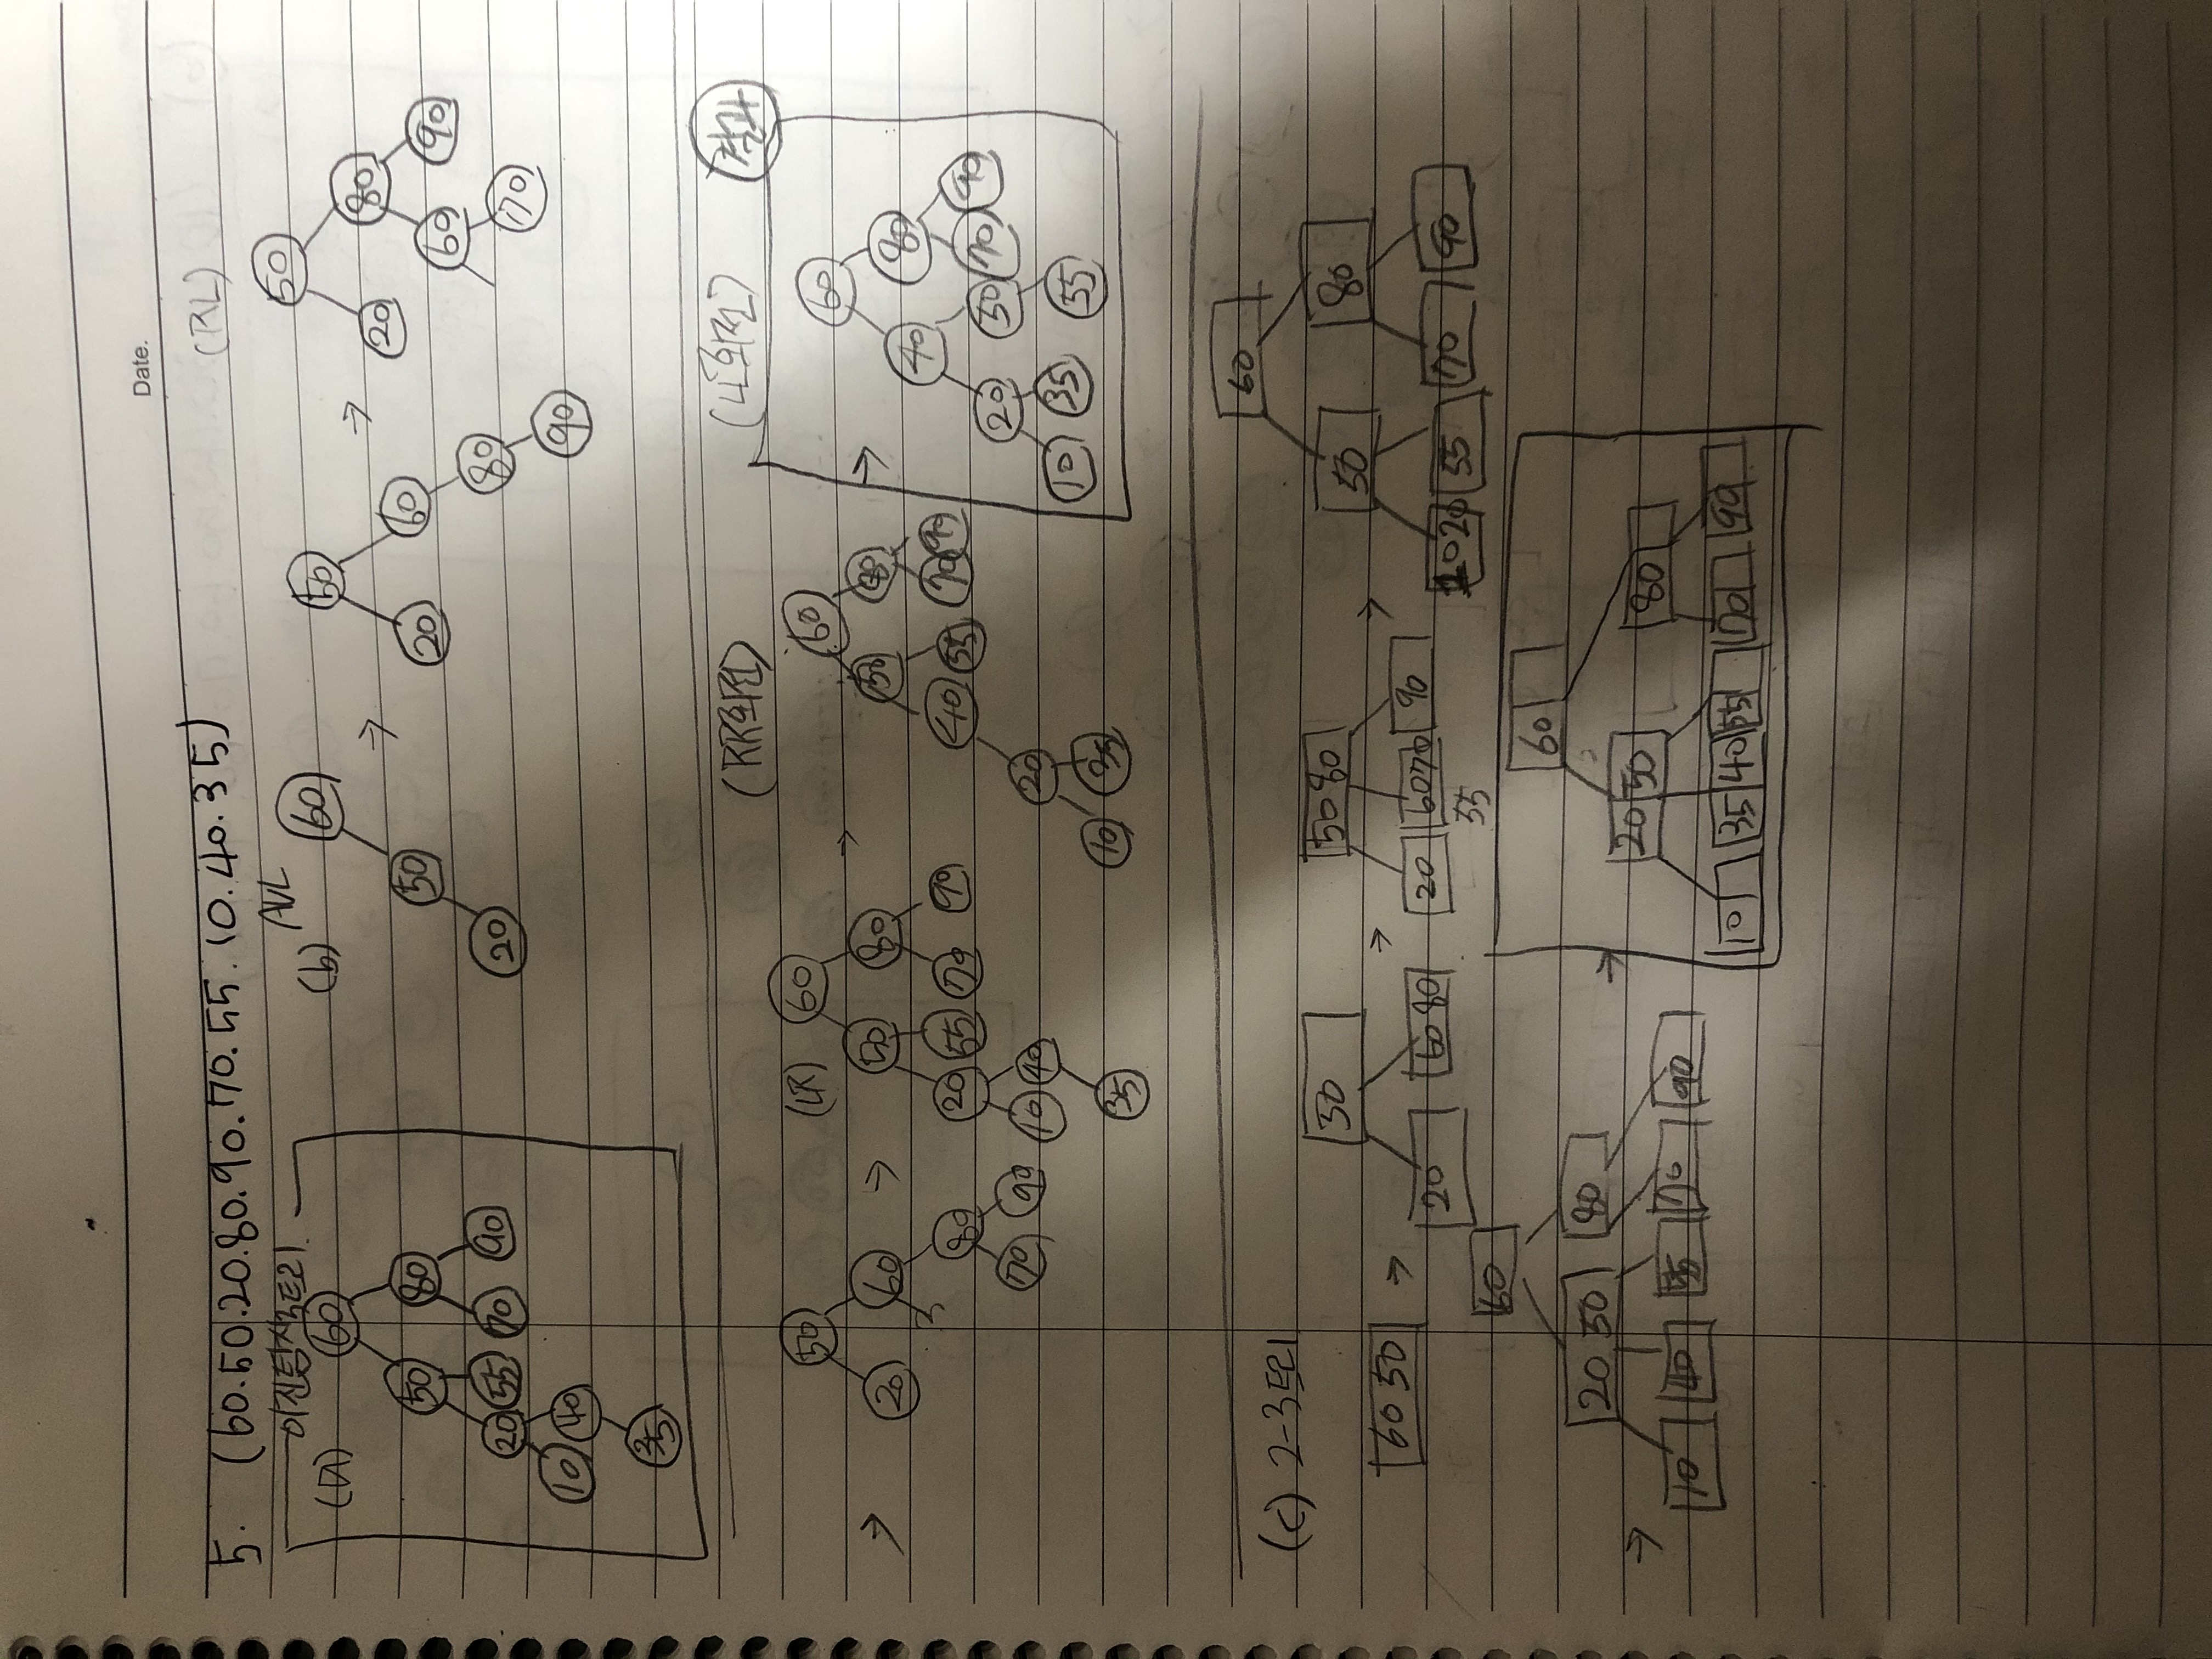 Date.
5. (60.50.20.80.90.70.55.10.40.35)
이진탐색트리
(a)
60
50 80
20 55 70 90
10 40
35
(b) AVL
60
50
20
→
50
20 60
80
90
→
(RL)
50
20 80
60 90
70
→
50
20 60
80
70 90
→
(LR)
60
50 80
20 55 70 90
10 40
35
→
(RR회전)
60
50 80
40 55 70 90
20
10 35
→
(LL회전) 결과
60
40 80
20 50 70 90
10 35 55
(c) 2-3트리
60 50
→
50
20 60 80
→
50 80
20 60 70 90
55
→
60
50 80
10 20 55 70 90
→
60
20 50 80
10 40 55 70 90
→
60
20 50 80
10 35 40 55 70 90